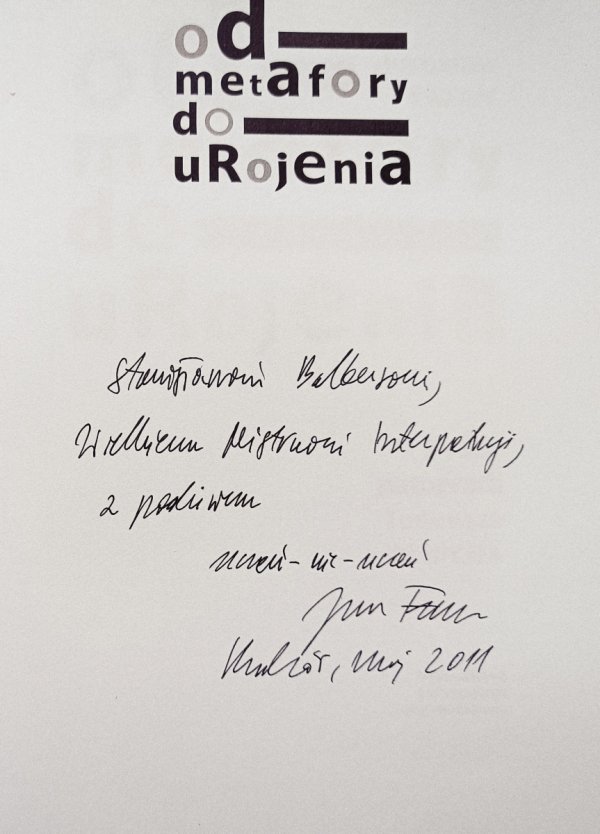 od
metafory
do
uRojenia
Stanisławowi Balbusowi,
Wielkiemu Mistrzowi Interpretacji,
z podziwem
uczeń-nie-uczeń
Kraków, maj 2011